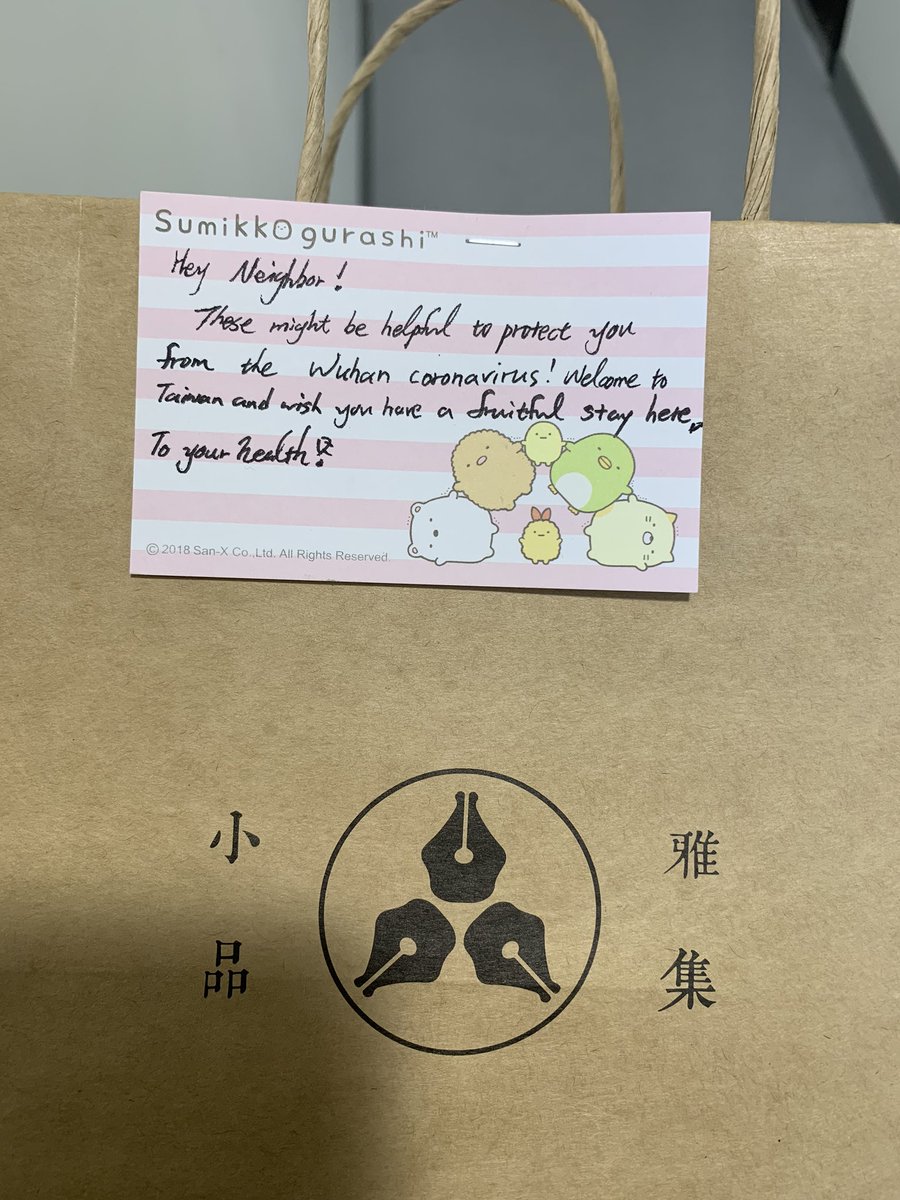 Sumikkogurashi™
Hey Neighbor!
These might be helpful to protect you
from the Wuhan coronavirus! Welcome to
Taiwan and wish you have a fruitful stay here,
To your health!
© 2018 San-X Co.,Ltd. All Rights Reserved.
小品
雅集